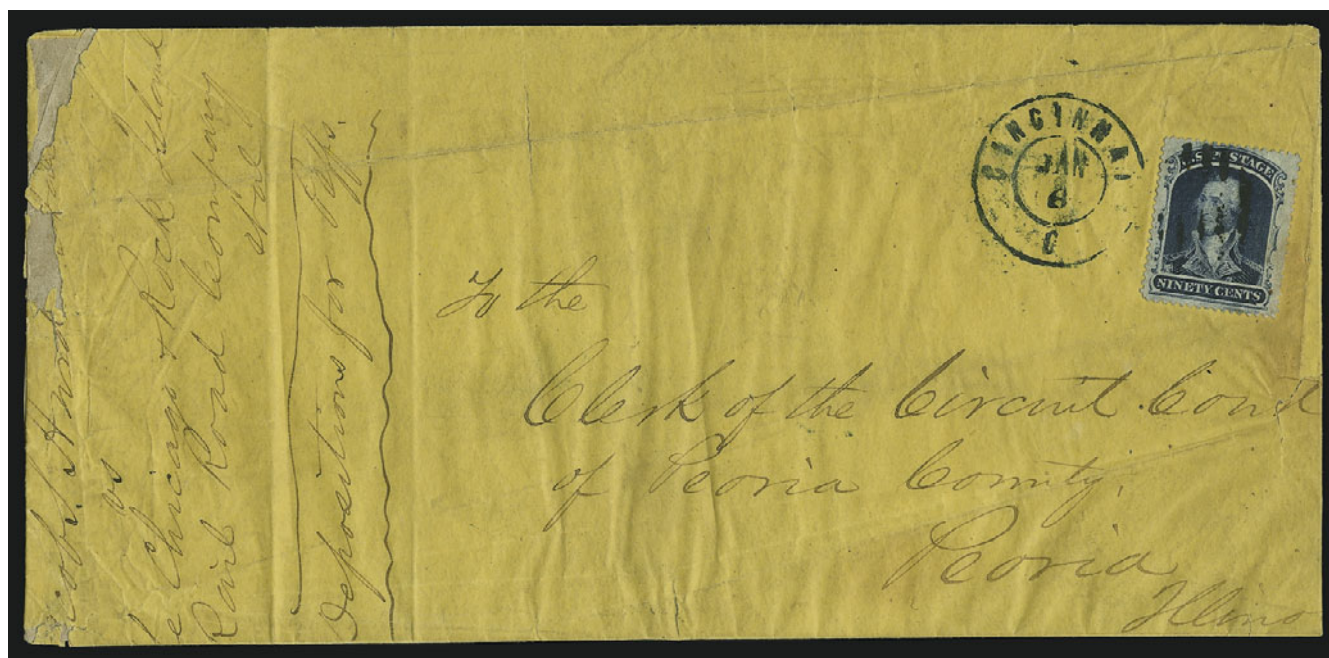 Jacob S. Hurd
vs
The Chicago & Rock Island
Rail Road Company
et al
Depositions for Plffs.
CINCINNA
JAN
6
O
U.S. POSTAGE
NINETY CENTS
To the
Clerk of the Circuit Court
of Peoria County,
Peoria
Illino